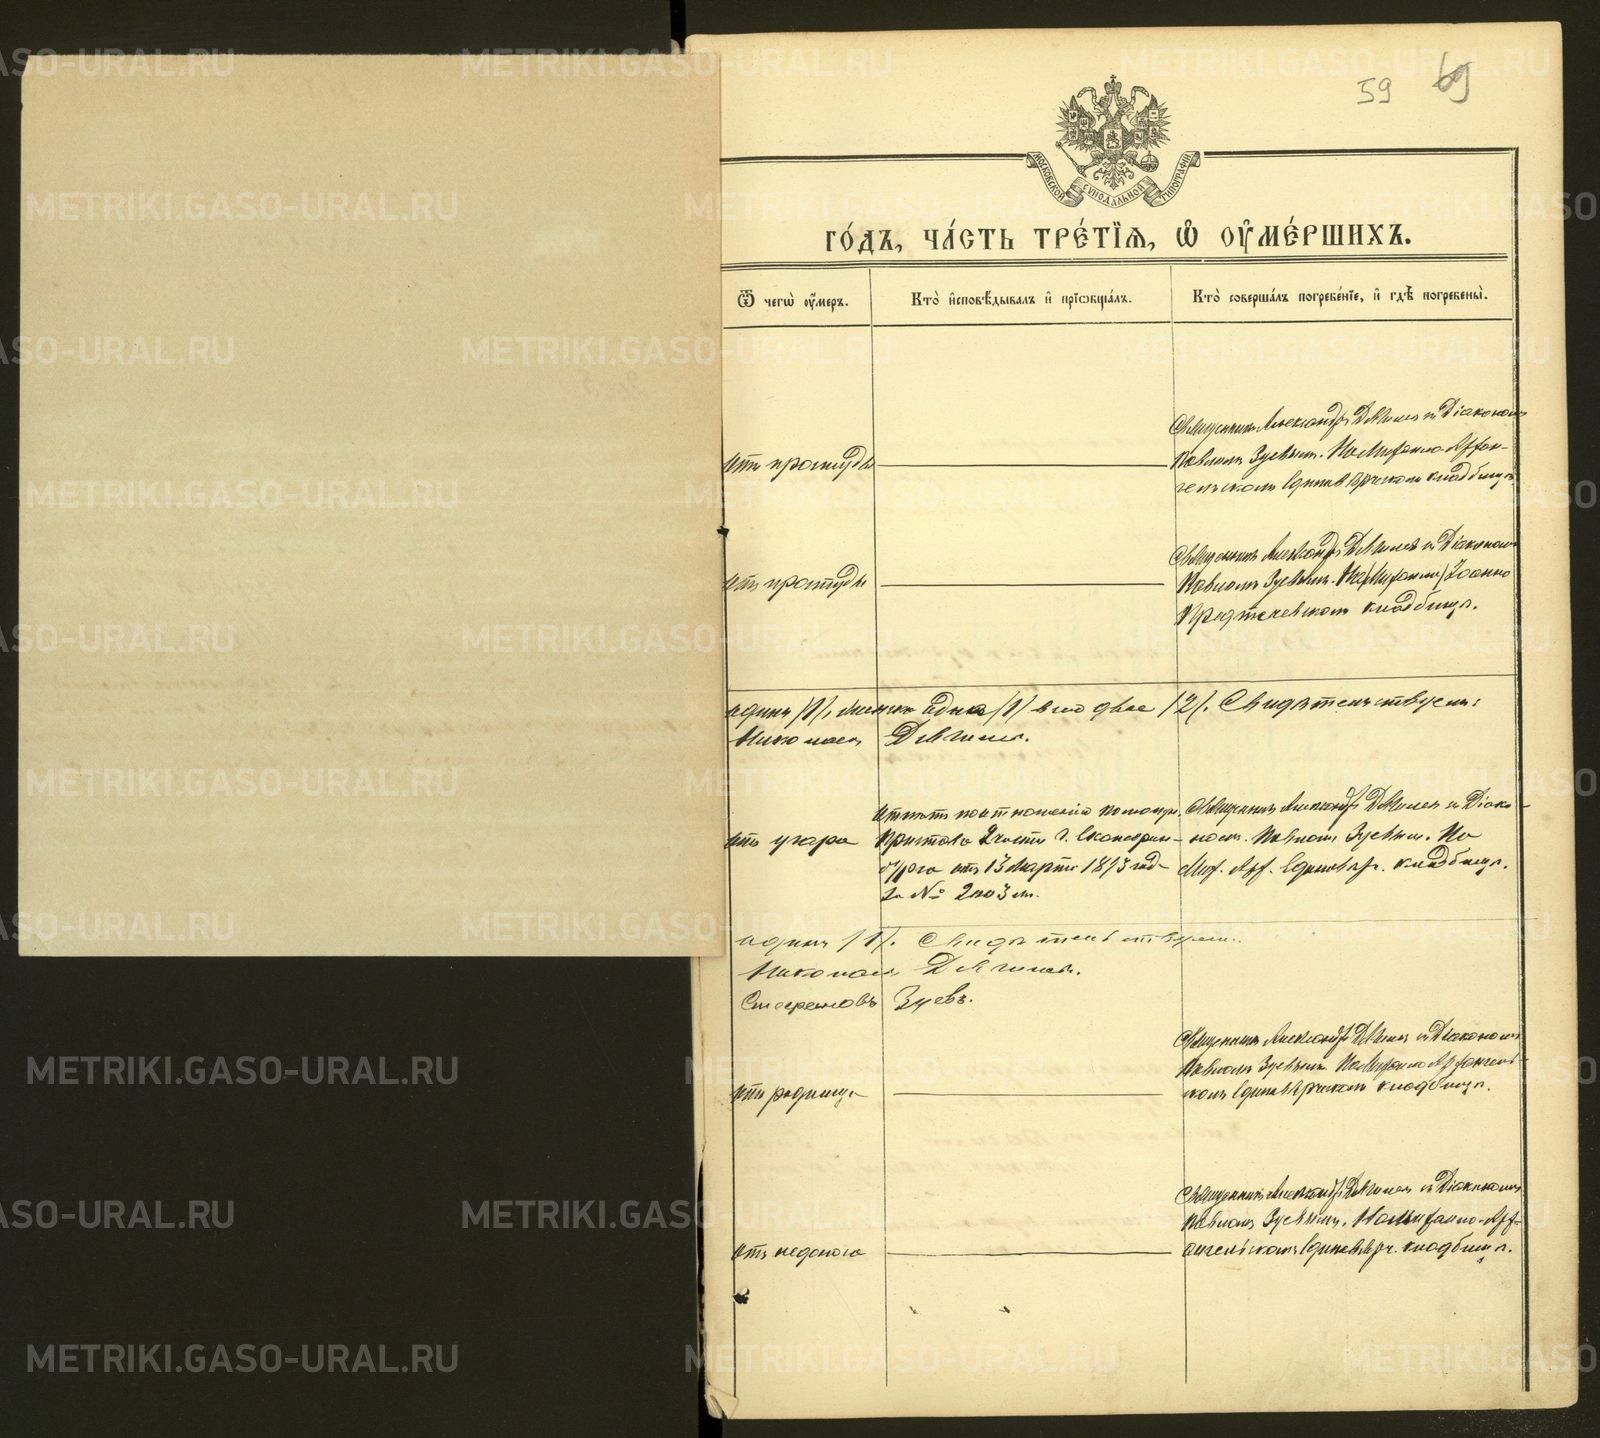 59
МОСКОВСКОЙ СѴНОДАЛЬНОЙ ТИПОГРАФІИ
ГО́ДЪ, ЧА́СТЬ ТРЕ́ТЇѦ, Ѽ ОУМЕ́РШИХЪ.
Ѿ чегѡ̀ оу́меръ.
Кто̀ и҆сповѣ́дывалъ и҆ прїѡбща́лъ.
Кто̀ соверша́лъ погребе́нїе, и҆ гдѣ̀ погребены̀.
отъ простуды
Священникъ Александръ с Діакономъ
Павломъ Зуевымъ. На Митрофано-Архан-
гельскомъ Единовѣрческомъ кладбищѣ
отъ простуды
Священникъ Александръ с Діакономъ
Павломъ Зуевымъ. На Іоанно
Предтечевскомъ кладбищѣ.
одинъ /1/, женска одна /1/ всего двое /2/. Свидѣтельствуемъ:
Николаевъ
отъ угара
отношенію
Пристава 2 части г. Екатерин-
бурга отъ 13 Марта 1893 года
за № 2003 м.
Священникъ Александръ с Діако-
номъ Павломъ Зуевым. На
Мит. Арх. Единовѣр. кладбищѣ.
одинъ /1/. Свидѣтельствуемъ:
Николаевъ
Стефановъ Зуевъ.
отъ родимца
Священникъ Александръ с Діакономъ
Павломъ Зуевымъ. На Митрофано Архангельс-
комъ Единовѣрческомъ кладбищѣ.
отъ недоноса
Священникъ Александръ с Діакономъ
Павломъ Зуевымъ. На Митрофано-Арх-
ангельскомъ Единовѣрч. кладбищѣ.
METRIKI.GASO-URAL.RU